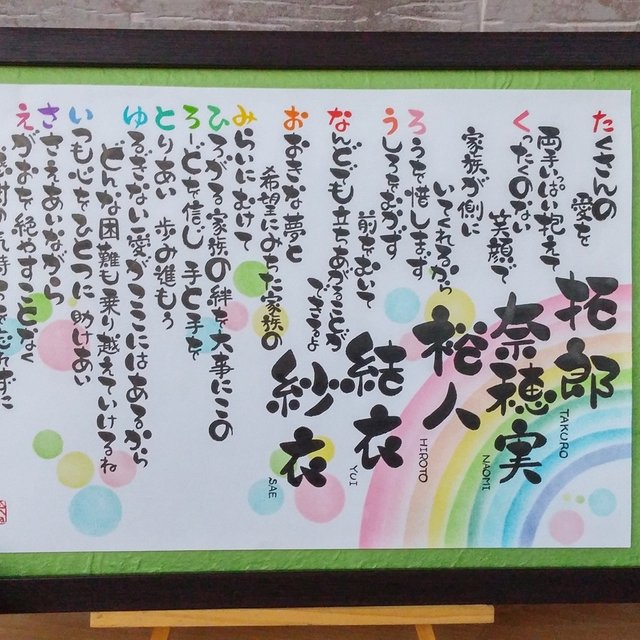 たくさんの
愛を
両手いっぱい抱えて
くったくのない
笑顔で
家族が側に
いてくれるから
ろうを惜しまず
うしろをむかず
前をむいて
なんどでも立ちあがることが
できるよ
おおきな夢と
希望にみちた家族の
みらいにむけて
ひろがる家族の絆を大事にこの
ろーどを信じ 手と手を
とりあい 歩み進もう
ゆるぎない愛がここにはあるから
どんな困難も乗り越えていけるね
いつも心をひとつに 助けあい
ささえあいながら
えがおを絶やすことなく
拓郎
TAKURO
奈穂実
NAOMI
裕人
HIROTO
結衣
YUI
紗衣
SAE